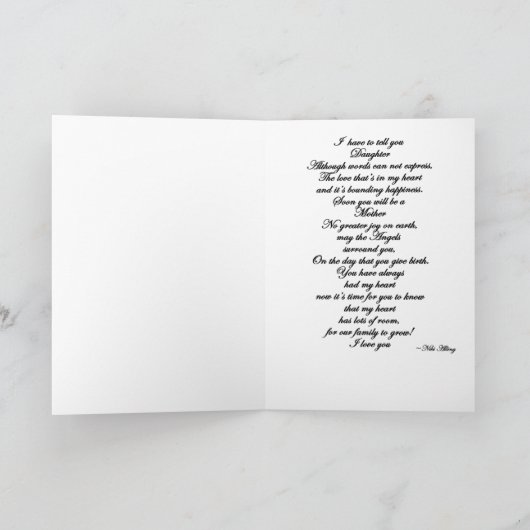 I have to tell you
Daughter
Although words can not express,
The love that's in my heart
and it's bounding happiness.
Soon you will be a
Mother
No greater joy on earth,
may the Angels
surround you,
On the day that you give birth.
You have always
had my heart
now it's time for you to know
that my heart
has lots of room,
for our family to grow!
I love you